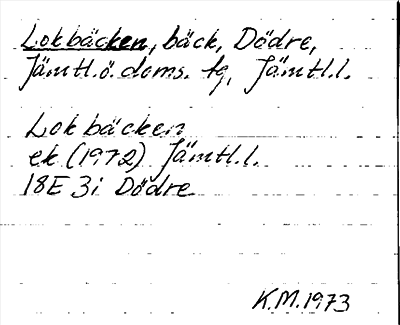 Lokbäcken, bäck, Dödre,
Jämtl.ö.doms. tg, Jämtl.l.
Lokbäcken
ek (1972) Jämtl.l.
18E 3i Dödre
K.M. 1973